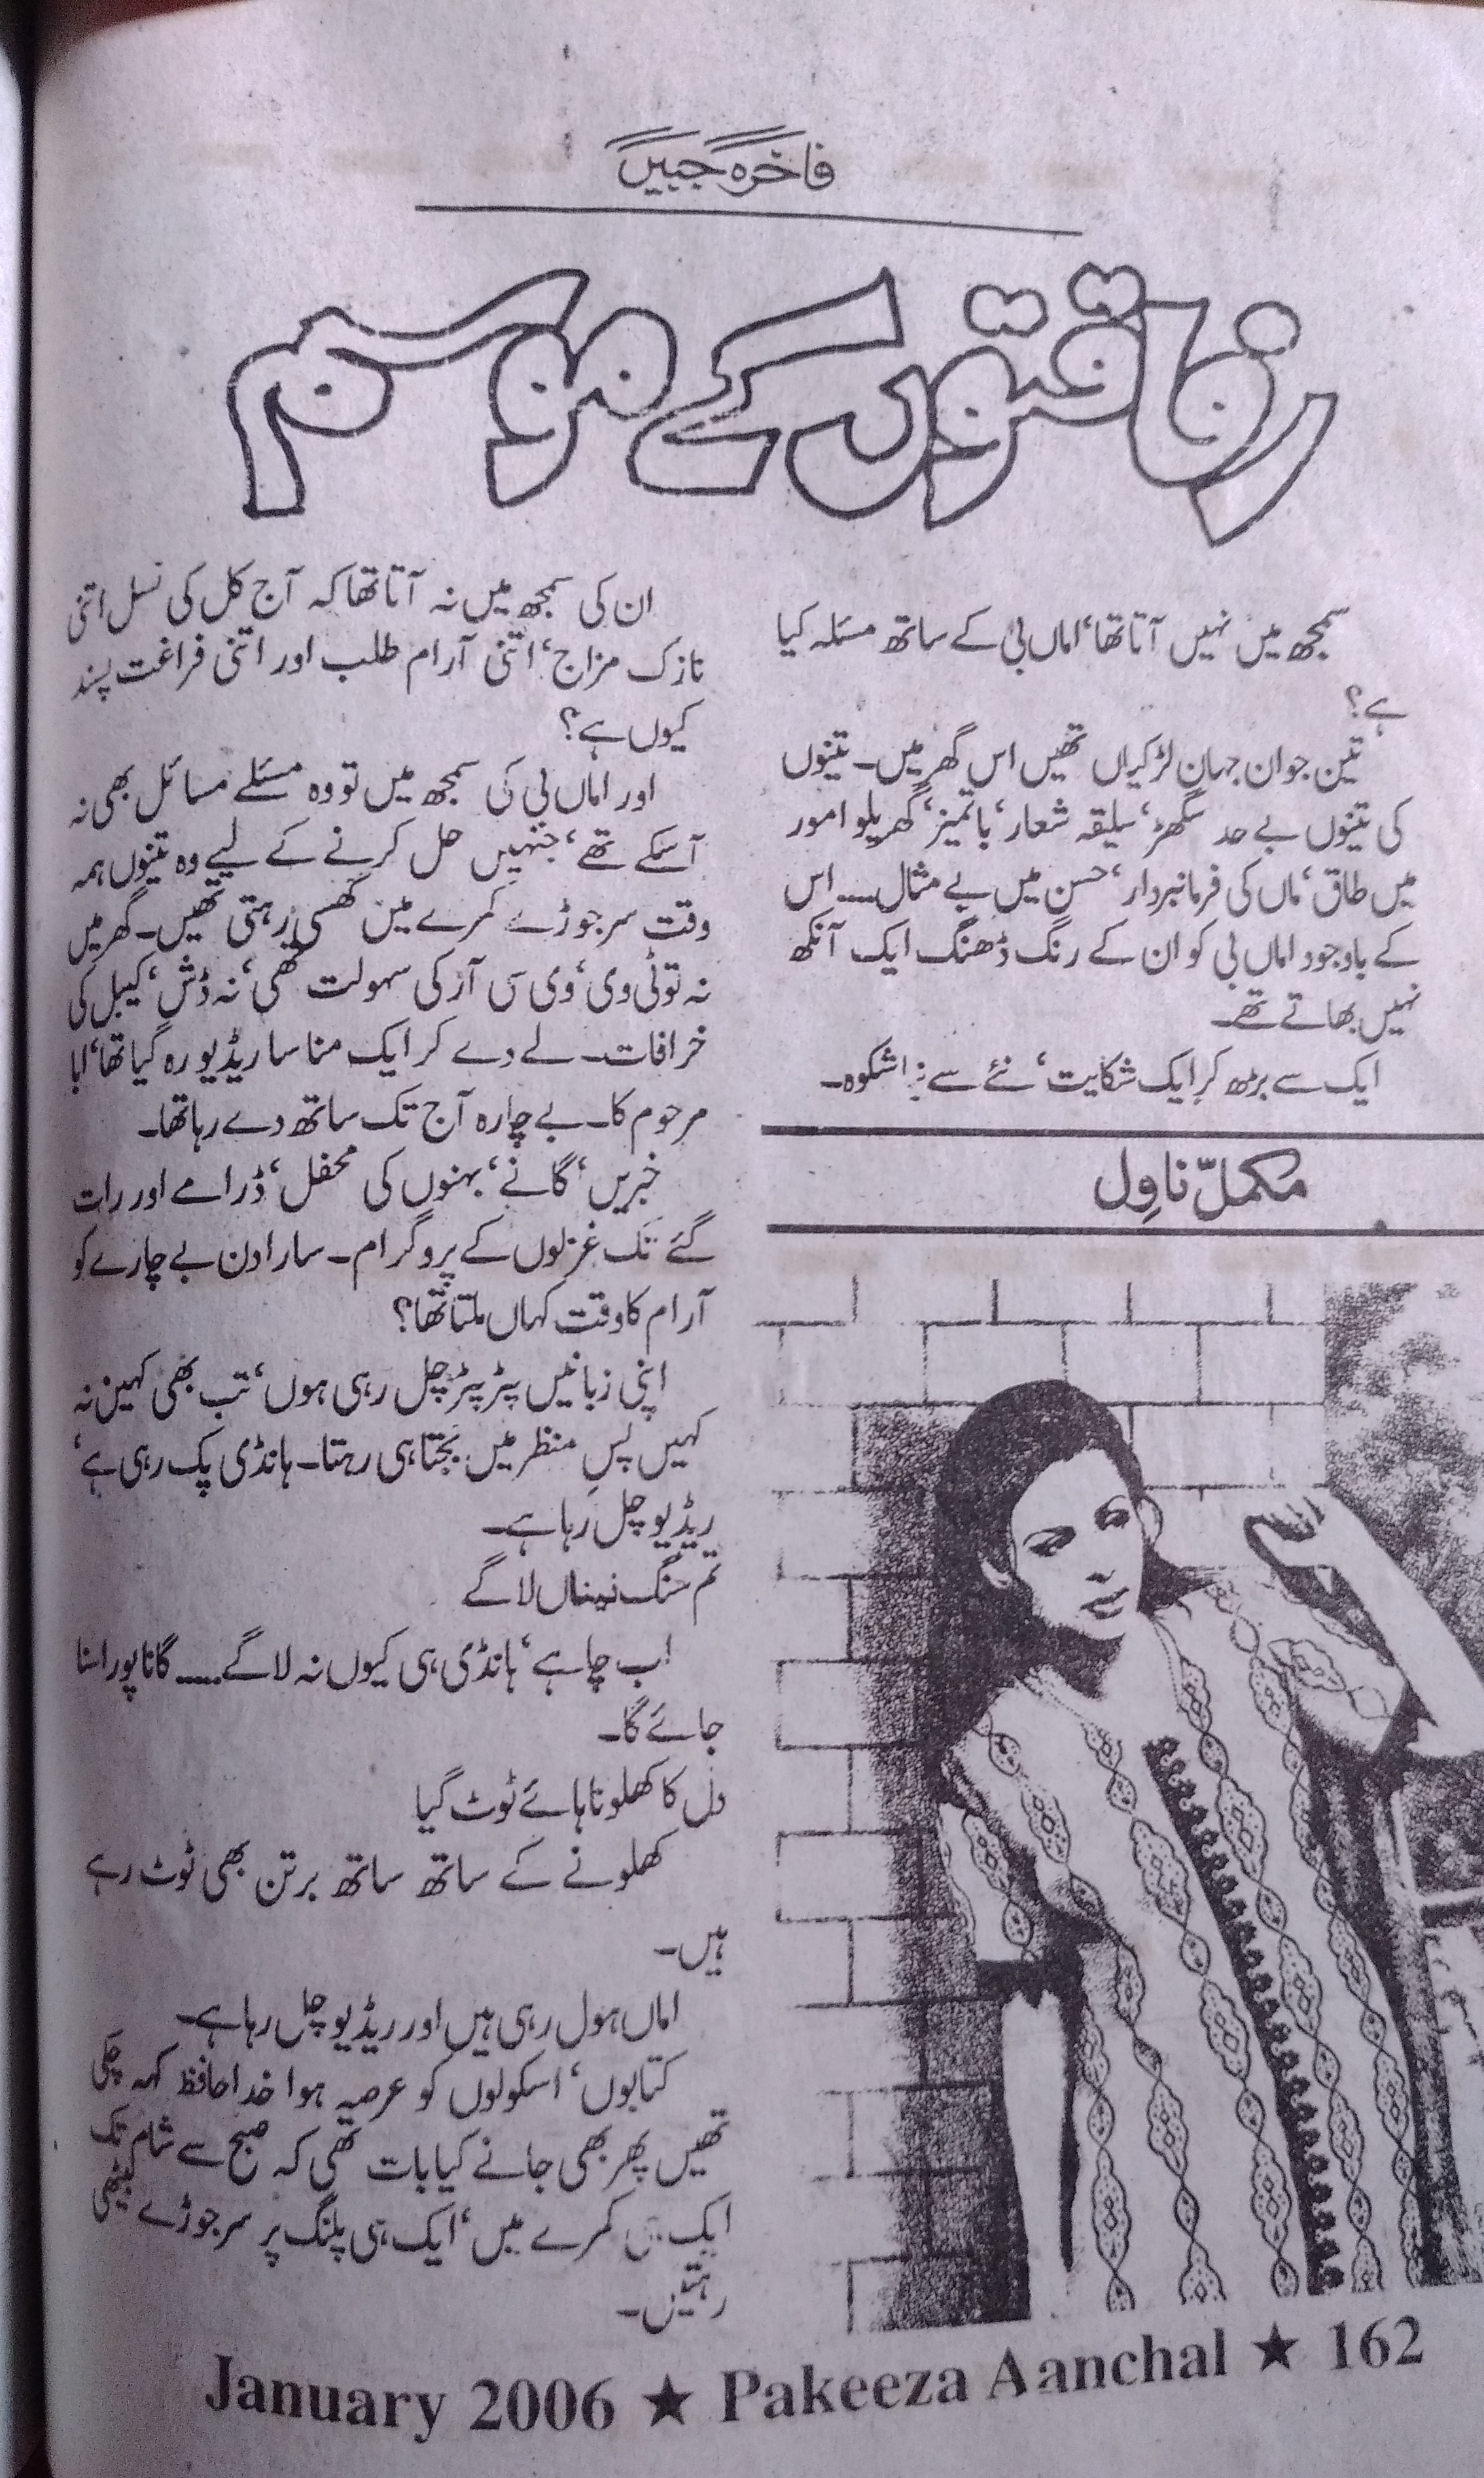 فاخرہ جبیں
رفاقتوں کے موسم
سمجھ میں نہیں آتا تھا‘ اماں بی کے ساتھ مسئلہ کیا
ہے؟
تین جوان جہان لڑکیاں تھیں اس گھر میں۔ تینوں
کی تینوں بے حد سگھڑ‘ سلیقہ شعار‘ باتمیز‘ گھریلو امور
میں طاق‘ ماں کی فرمانبردار‘ حسن میں بے مثال.... اس
کے باوجود اماں بی کو ان کے رنگ ڈھنگ ایک آنکھ
نہیں بھاتے تھے۔
ایک سے بڑھ کر ایک شکایت‘ نئے سے نیا شکوہ۔
مکمل ناول
ان کی سمجھ میں نہ آتا تھا کہ آج کل کی نسل اتنی
نازک مزاج‘ اتنی آرام طلب اور اتنی فراغت پسند
کیوں ہے؟
اور اماں بی کی سمجھ میں تو وہ مسئلے مسائل بھی نہ
آسکے تھے‘ جنہیں حل کرنے کے لیے وہ تینوں ہمہ
وقت سر جوڑے کمرے میں گھسی رہتی تھیں۔ گھر میں
نہ تو ٹی وی‘ وی سی آر کی سہولت تھی‘ نہ ڈش‘ کیبل کی
خرافات۔ لے دے کر ایک منا سا ریڈیو رہ گیا تھا‘ ابا
مرحوم کا۔ بے چارہ آج تک ساتھ دے رہا تھا۔
خبریں‘ گانے‘ بہنوں کی محفل‘ ڈرامے اور رات
گئے تک غزلوں کے پروگرام۔ سارا دن بے چارے کو
آرام کا وقت کہاں ملتا تھا؟
اپنی زبانیں پٹر پٹر چل رہی ہوں‘ تب بھی کہیں نہ
کہیں پس منظر میں بجتا ہی رہتا۔ ہانڈی پک رہی ہے‘
ریڈیو چل رہا ہے۔
تم سنگ نیناں لاگے
اب چاہے‘ ہانڈی ہی کیوں نہ لاگے.... گانا پورا سنا
جائے گا۔
دل کا کھلونا ہائے ٹوٹ گیا
کھلونے کے ساتھ ساتھ برتن بھی ٹوٹ رہے
ہیں۔
اماں ہول رہی ہیں اور ریڈیو چل رہا ہے۔
کتابوں‘ اسکولوں کو عرصہ ہوا خدا حافظ کہہ چکی
تھیں پھر بھی جانے کیا بات تھی کہ صبح سے شام تک
ایک ہی کمرے میں‘ ایک ہی پلنگ پر سر جوڑے بیٹھی
رہتیں۔
January 2006 ★ Pakeeza Aanchal ★ 162